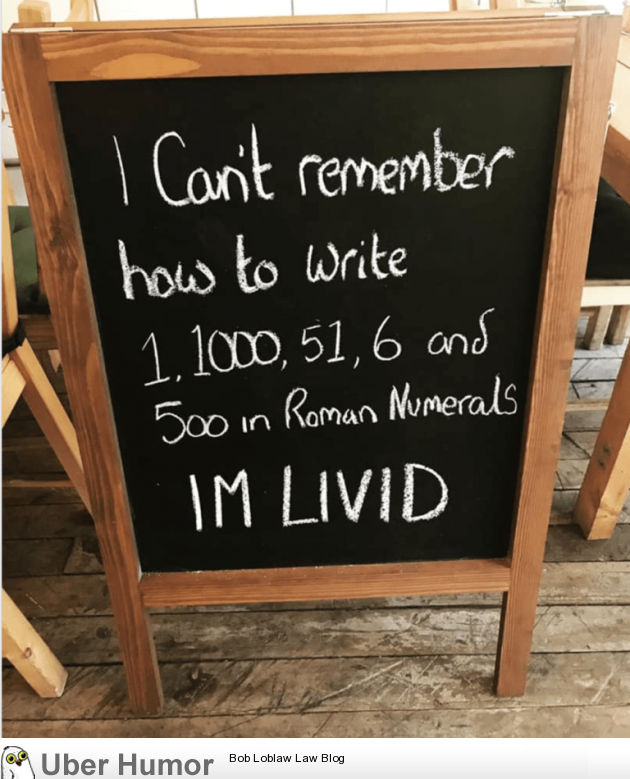 I Can't remember
how to write
1, 1000, 51, 6 and
500 in Roman Numerals
IM LIVID
Uber Humor
Bob Loblaw Law Blog